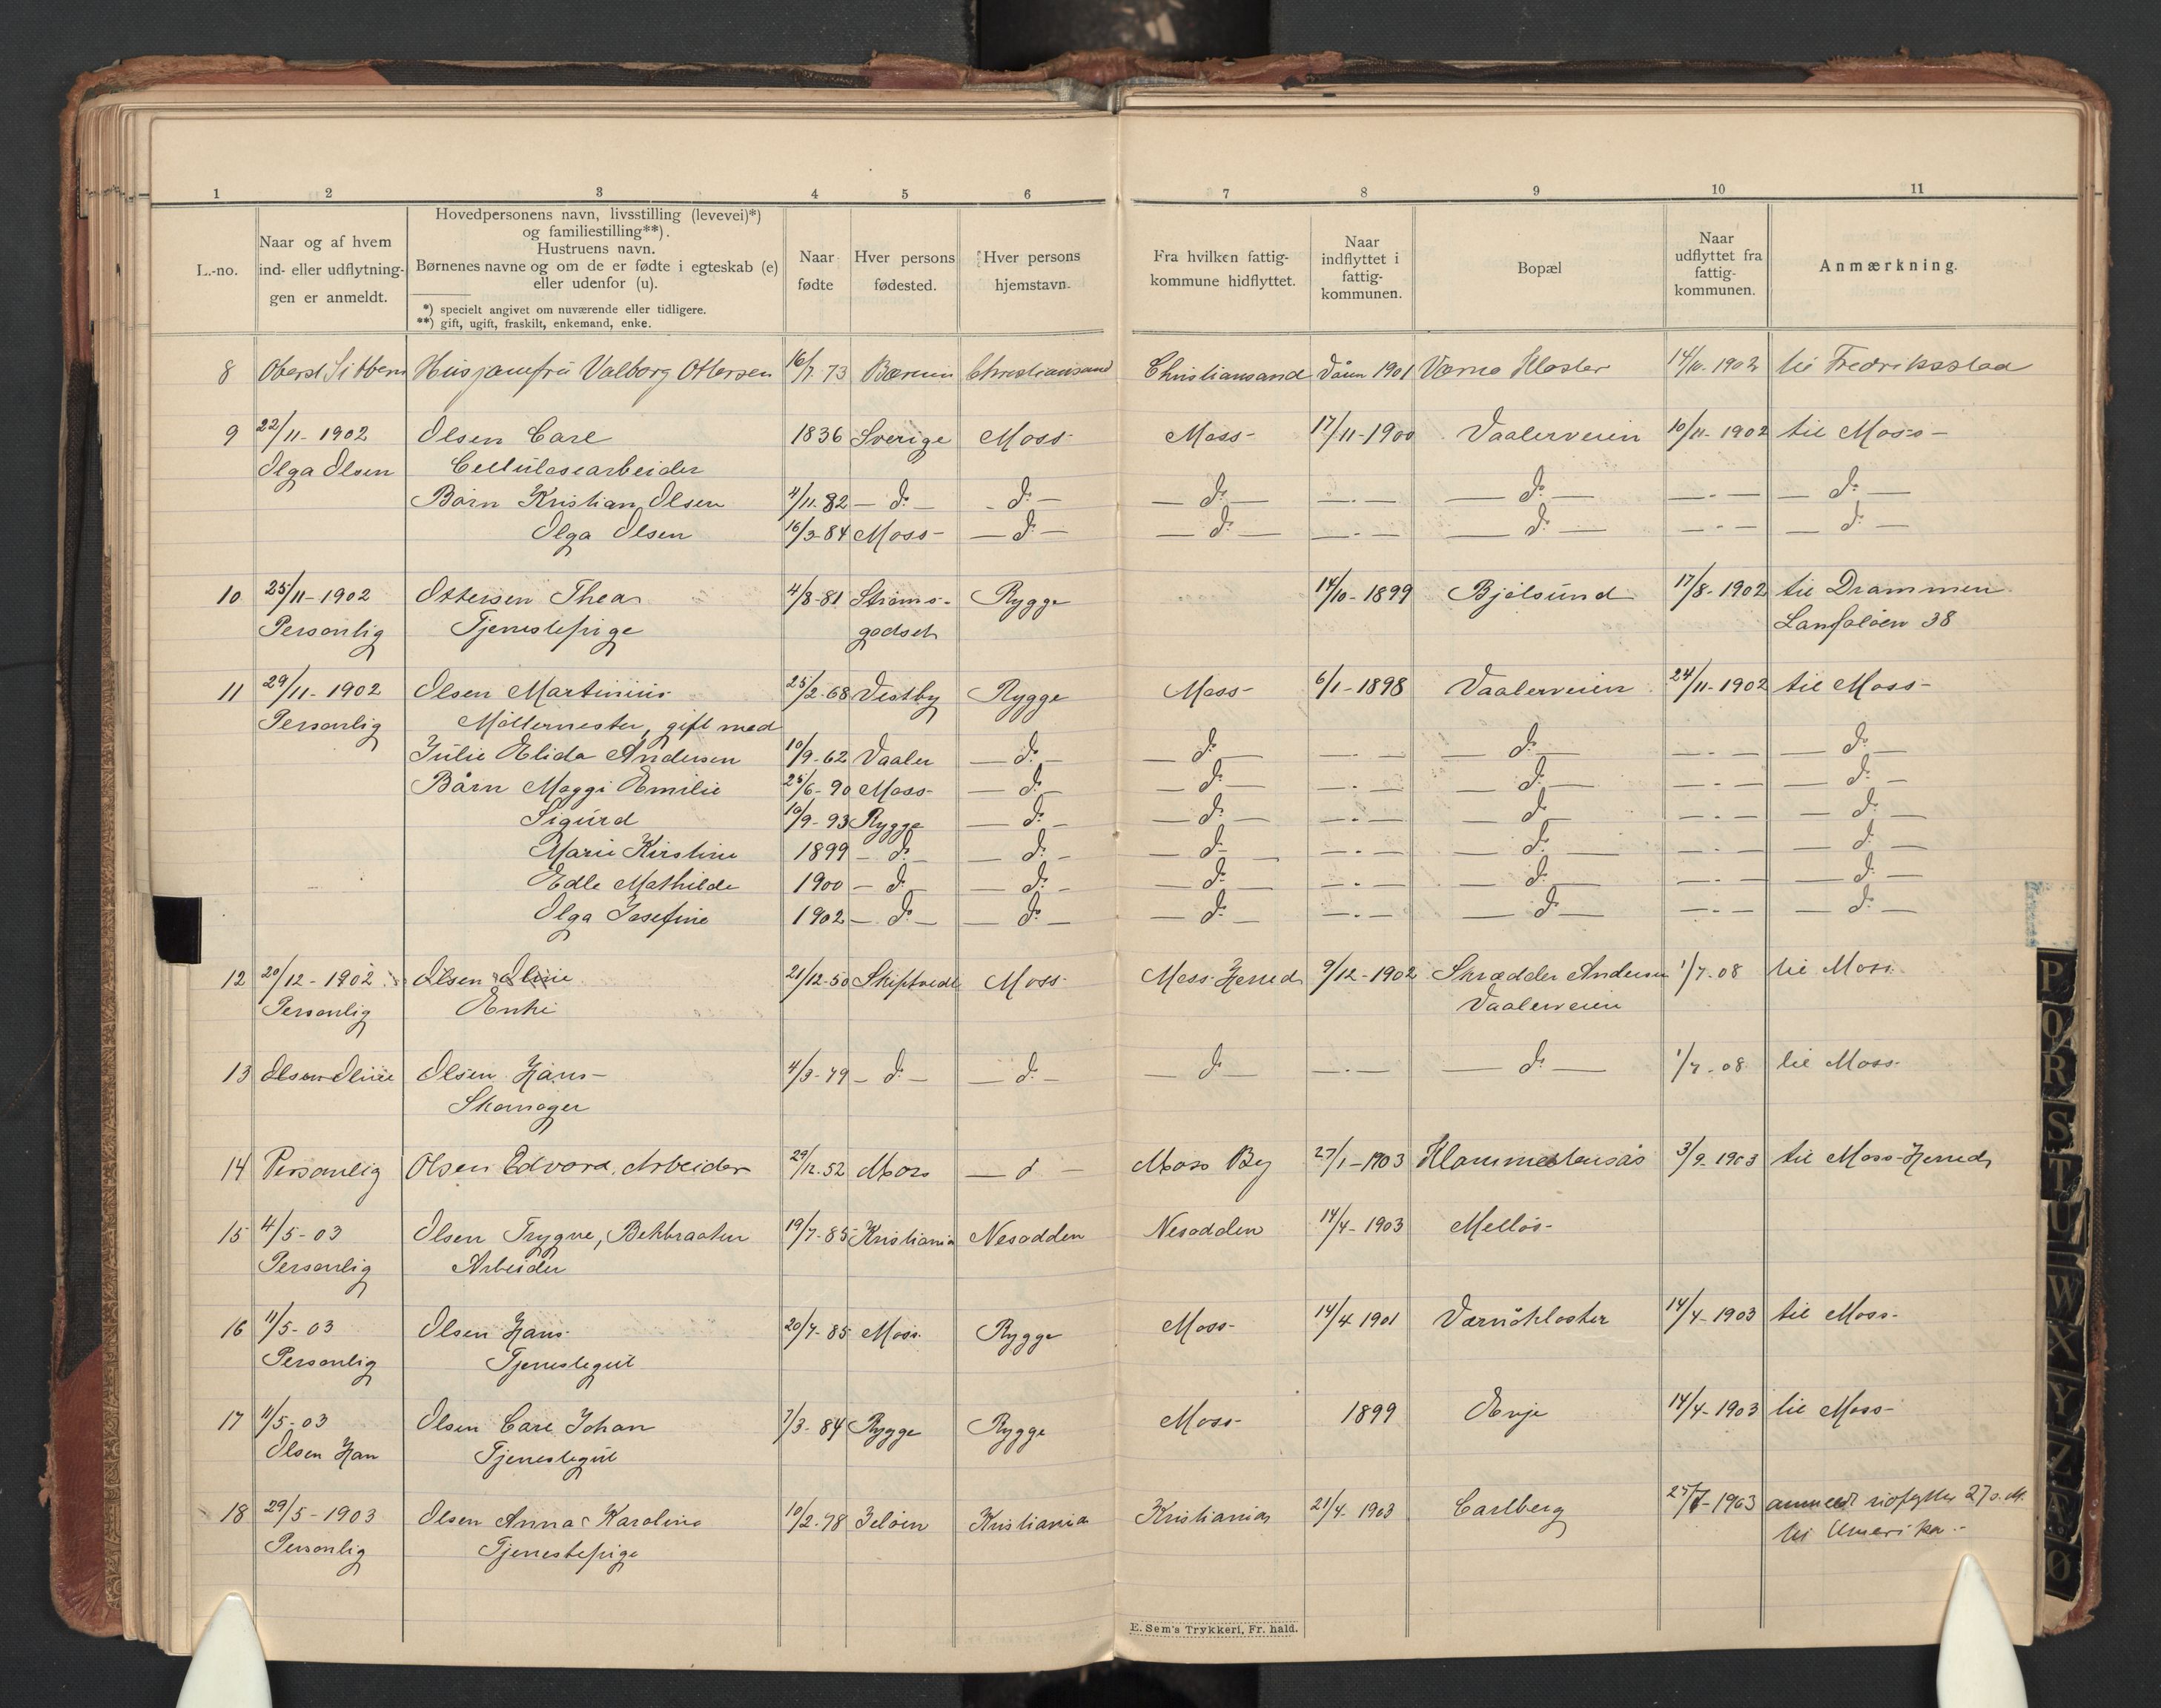 1 2 3 4 5 6 7 8 9 10 11
L.-no.
Naar og af hvem
ind- eller udflytnin-
gen er anmeldt.
Hovedpersonens navn, livsstilling (levevei)*)
og familiestilling**).
Hustruens navn.
Børnenes navne og om de er fødte i egteskab (e)
eller udenfor (u).
*) specielt angivet om nuværende eller tidligere.
**) gift, ugift, fraskilt, enkemand, enke.
Naar
fødte
Hver persons
fødested.
Hver persons
hjemstavn.
Fra hvilken fattig-
kommune hidflyttet.
Naar
indflyttet i
fattig-
kommunen.
Bopæl
Naar
udflyttet fra
fattig-
kommunen.
Anmærkning.
8 Oberst Sibbern Husjomfru Valborg Ottersen 16/7 73 Bærum Christiansand Christiansand Våren 1901 Værne Kloster 14/10. 1902 til Fredriksstad
9 22/11- 1902 Olsen Carl 1836 Sverige Moss- Moss- 17/11-1900 Vaalerveien 10/11-1902 til Moss-
Olga Olsen Cellulosearbeider
Børn Kristian Olsen 4/11-82 — do — - do — — do — —.— — do — —.— — do —
Olga Olsen 16/3-84 Moss- — do — — do — —.— — do — —.— — do —
10 25/11-1902 Ottersen Thea 4/8-81 Strøms- Rygge 14/10-1899 Bjølsund 17/8-1902 til Drammen
Personlig Tjenestepige godset Lansaløen 38
11 29/11-1902 Olsen Martinius 25/2-68 Vestby Rygge Moss- 6/1-1898 Vaalerveien 24/11-1902 til Moss-
Personlig Møllermester, gift med
Julie Elida Andersen 10/9-62 Vaaler — do — — do — —.— — do — —.— — do —
Børn Maggi Emilie 25/6-90 Moss- — do — — do — —.— — do — —.— — do —
Sigurd 10/9-93 Rygge — do — — do — —.— — do — —.— — do —
Marie Kirstine 1899 — do — — do — — do — —.— — do — —.— — do —
Edle Mathilde 1900 — do — — do — — do — —.— — do — —.— — do —
Olga Josefine 1902 — do — — do — — do — —.— — do — —.— — do —
12 20/12-1902 Olsen Oline 21/12-50 Skiptvedt Moss- Moss-Herred 9/12-1902 Skrædder Andersen 1/7-08 til Moss.
Personlig Enke Vaalerveien
13 Olsen Oline Olsen Hans- 4/3-79 — do — — do — — do — —.— — do — 1/7-08 til Moss.
Skomager
14 Personlig Olsen Edvard, Arbeider 29/12.52 Moss — do — Moss By 27/1-1903 3/9-1903 til Moss-Herred
15 4/5-03 Olsen Trygve, Bekbraaten 19/7-85 Kristiania Nesodden Nesodden 14/4-1903 Melløs-
Personlig Arbeider
16 11/5-03 Olsen Hans- 20/7-85 Moss. Rygge Moss- 14/4 1901 Værnekloster 14/4-1903 til Moss-
Personlig Tjenestegut
17 11/5-03 Olsen Carl Johan 7/3-84 Rygge Rygge Moss- 1899 Evje 14/4-1903 til Moss-
Olsen Han Tjenestegut
18 29/5-1903 Olsen Anna Karoline 10/2-78 Jeløen Kristiania Kristiania 21/4-1903 Carlberg 25/7-1903 anmeldt udflytter 27 s. M.
Personlig Tjenestepige til Amerika.-
E. Sem's Trykkeri, Fr. hald.
P
Q
R
S
T
U
W
X
Y
Z
Æ
Ø